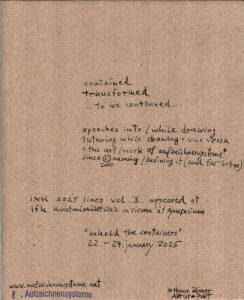 contained
transformed
... to be continued ...
speeches into / while drawing
listening while drawing + vice versa
= the art / work of aufzeichensysteme*
since © naming / defining it (and far before)
2000
INK 2025 lines vol. II. appeared at
ifk Kunstuniversität in vienna at symposium
"behold the containers"
22. - 24. january 2025
www.aufzeichensysteme.net
Aufzeichnensysteme
ARTIST + POET